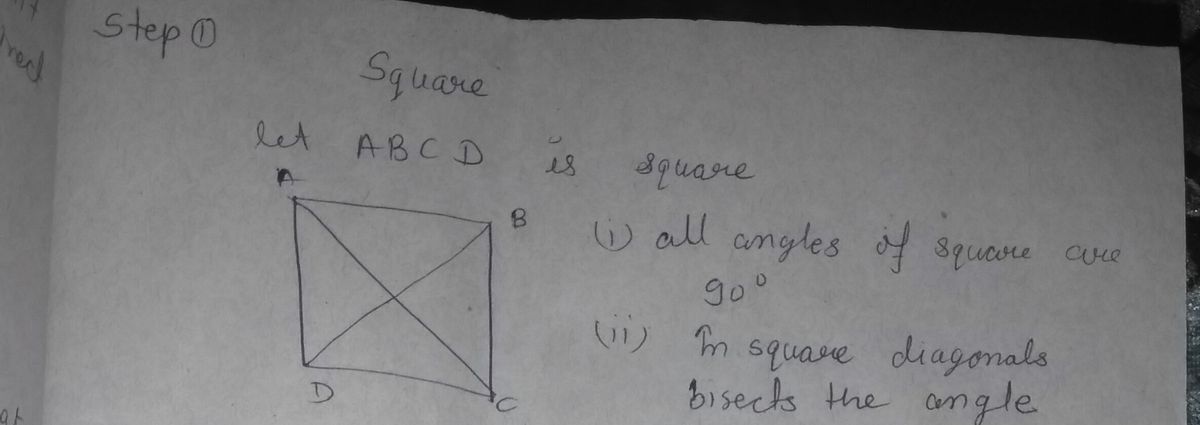 Step ①
Square
let ABCD is square
A
B
(i) all angles of square are
90°
(ii) In square diagonals
bisects the angle
D
C